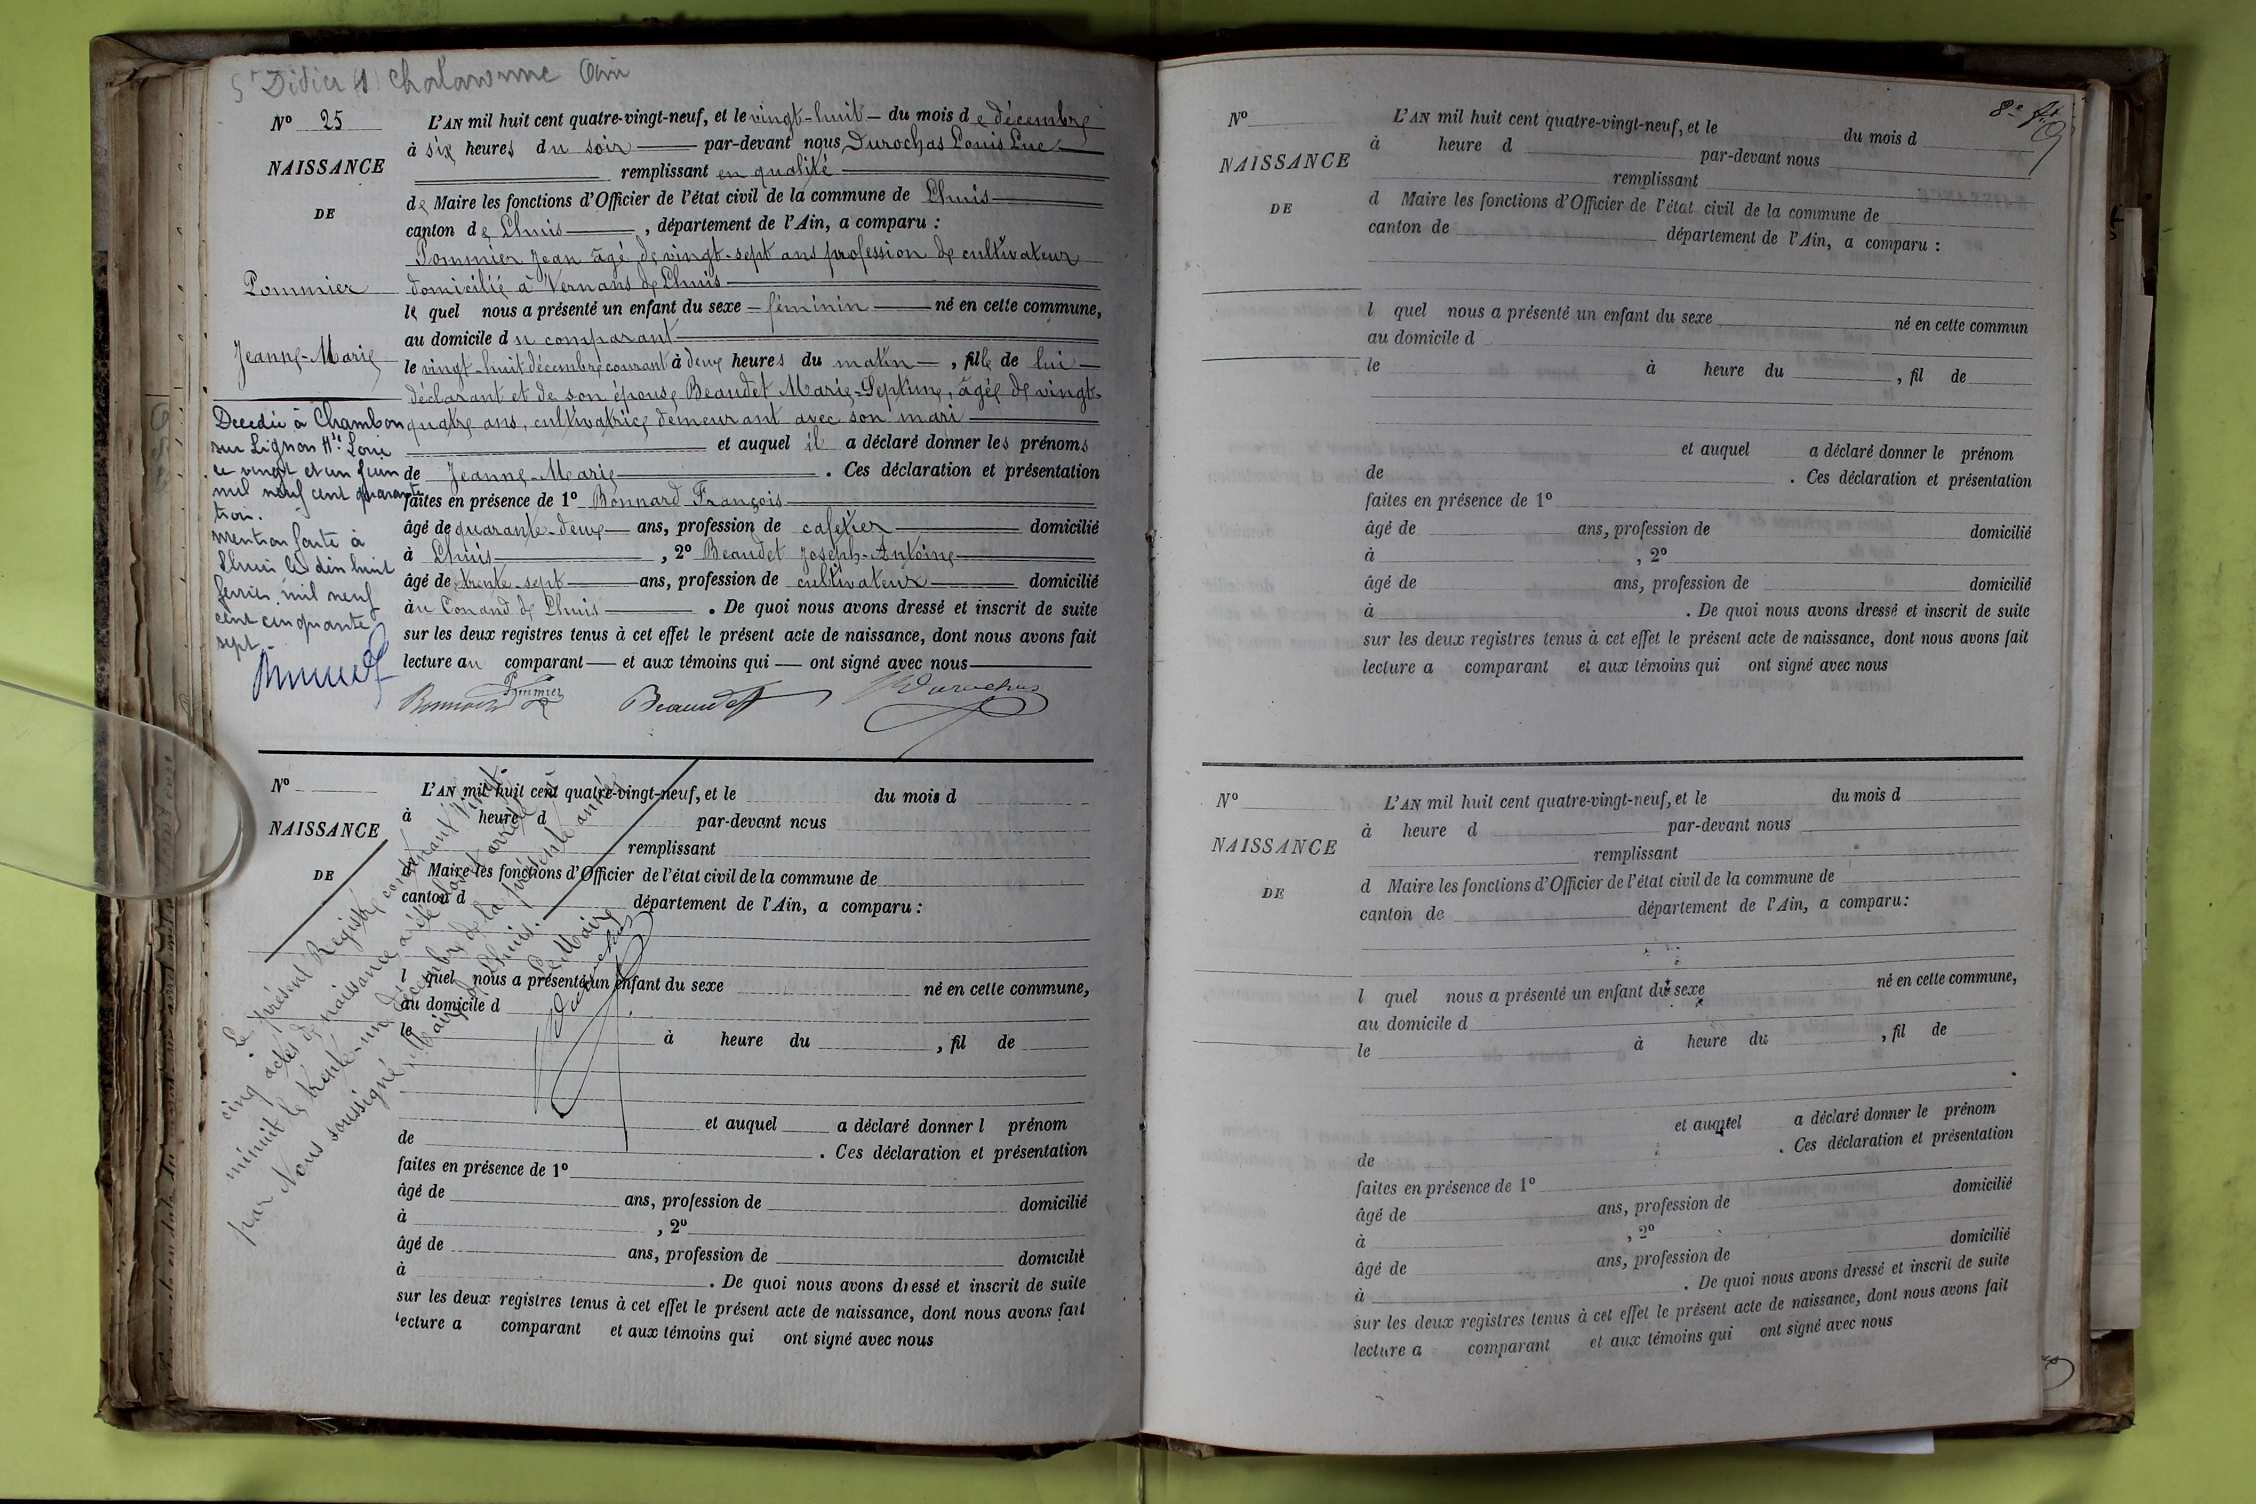 St Didier s Chalaronne Ain
No 25
NAISSANCE
DE
Pommier
Jeanne-Marie
L'AN mil huit cent quatre-vingt-neuf, et le vingt-huit du mois de décembre
à six heures du soir par-devant nous Durochas Louis Luc
remplissant en qualité
de Maire les fonctions d'Officier de l'état civil de la commune de Lhuis
canton de Lhuis, département de l'Ain, a comparu :
Pommier Jean âgé de vingt-sept ans profession de cultivateur
domicilié à Vernans de Lhuis
lequel nous a présenté un enfant du sexe féminin né en cette commune,
au domicile du comparant
le vingt-huit décembre courant à deux heures du matin, fille de lui
déclarant et de son épouse Beaudet Marie-Septime, âgée de vingt-
quatre ans, cultivatrice demeurant avec son mari
et auquel il a déclaré donner les prénoms
de Jeanne-Marie. Ces déclaration et présentation
faites en présence de 1o Bonnard François
âgé de quarante-deux ans, profession de cafetier domicilié
à Lhuis, 2o Beaudet Joseph-Antoine
âgé de trente-sept ans, profession de cultivateur domicilié
au Conand de Lhuis. De quoi nous avons dressé et inscrit de suite
sur les deux registres tenus à cet effet le présent acte de naissance, dont nous avons fait
lecture au comparant et aux témoins qui ont signé avec nous
Pommier
Bonnard Beaudet Durochas
Decedée à Chambon
sur Lignon Hte Loire
le vingt et un juin
mil neuf cent quarante
trois.
Mention faite à
Lhuis le dix huit
fevrier mil neuf
cent cinquante
sept
No
NAISSANCE
DE
L'AN mil huit cent quatre-vingt-neuf, et le du mois d
à heure d par-devant nous
remplissant
d Maire les fonctions d'Officier de l'état civil de la commune de
canton d département de l'Ain, a comparu :
l quel nous a présenté un enfant du sexe né en cette commune,
au domicile d
le à heure du , fil de
et auquel a déclaré donner l prénom
de . Ces déclaration et présentation
faites en présence de 1o
âgé de ans, profession de domicilié
à , 2o
âgé de ans, profession de domicilié
à . De quoi nous avons dressé et inscrit de suite
sur les deux registres tenus à cet effet le présent acte de naissance, dont nous avons fait
lecture a comparant et aux témoins qui ont signé avec nous
Le présent Registre contenant vingt-
cinq actes de naissance a été clos et arrêté à
minuit le trente-un décembre de la présente année
par Nous soussigné, Maire de Lhuis.
Le Maire
Durochas
8e ft
No
NAISSANCE
DE
L'AN mil huit cent quatre-vingt-neuf, et le du mois d
à heure d par-devant nous
remplissant
d Maire les fonctions d'Officier de l'état civil de la commune de
canton de département de l'Ain, a comparu :
l quel nous a présenté un enfant du sexe né en cette commun
au domicile d
le à heure du , fil de
et auquel a déclaré donner le prénom
de . Ces déclaration et présentation
faites en présence de 1o
âgé de ans, profession de domicilié
à , 2o
âgé de ans, profession de domicilié
à . De quoi nous avons dressé et inscrit de suite
sur les deux registres tenus à cet effet le présent acte de naissance, dont nous avons fait
lecture a comparant et aux témoins qui ont signé avec nous
No
NAISSANCE
DE
L'AN mil huit cent quatre-vingt-neuf, et le du mois d
à heure d par-devant nous
remplissant
d Maire les fonctions d'Officier de l'état civil de la commune de
canton de département de l'Ain, a comparu :
l quel nous a présenté un enfant du sexe né en cette commune,
au domicile d
le à heure du , fil de
et auquel a déclaré donner le prénom
de . Ces déclaration et présentation
faites en présence de 1o
âgé de ans, profession de domicilié
à , 2o
âgé de ans, profession de domicilié
à . De quoi nous avons dressé et inscrit de suite
sur les deux registres tenus à cet effet le présent acte de naissance, dont nous avons fait
lecture a comparant et aux témoins qui ont signé avec nous